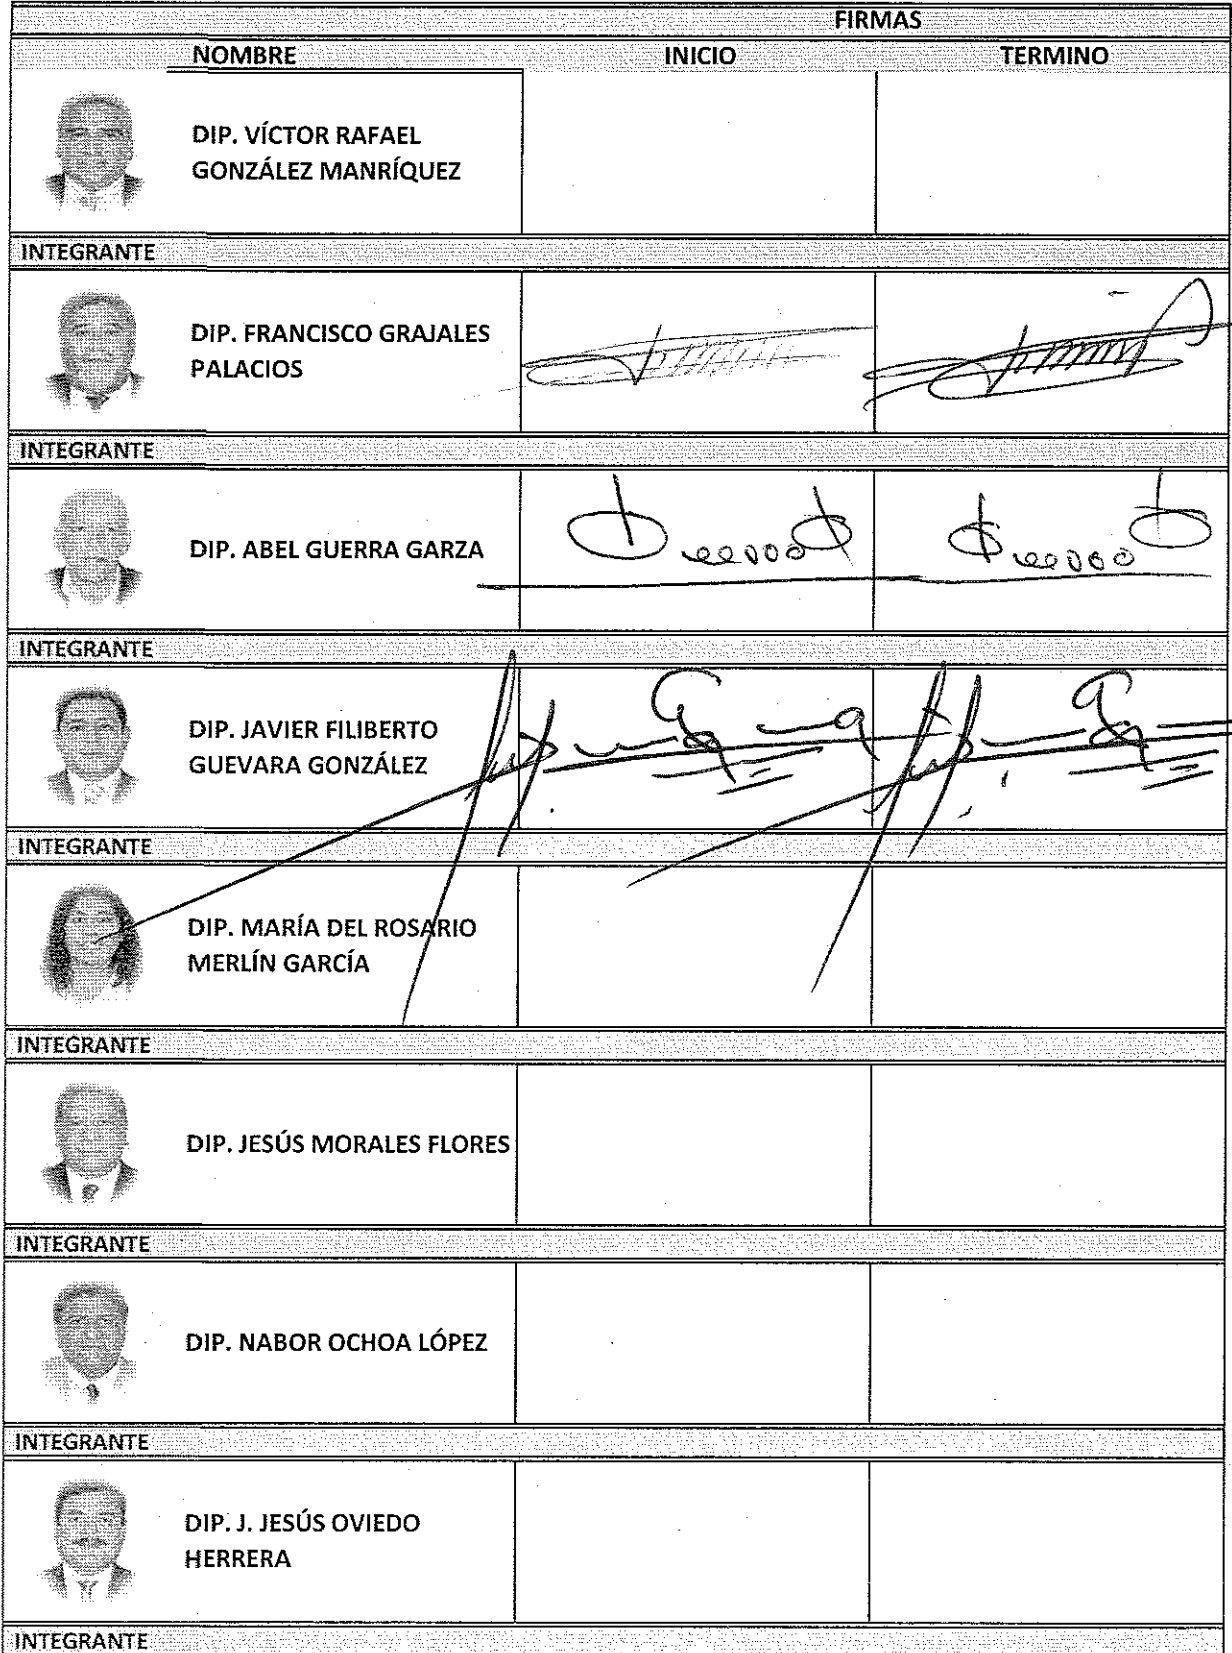 FIRMAS
NOMBRE INICIO TERMINO
DIP. VÍCTOR RAFAEL
GONZÁLEZ MANRÍQUEZ
INTEGRANTE
DIP. FRANCISCO GRAJALES
PALACIOS
INTEGRANTE
DIP. ABEL GUERRA GARZA
INTEGRANTE
DIP. JAVIER FILIBERTO
GUEVARA GONZÁLEZ
INTEGRANTE
DIP. MARÍA DEL ROSARIO
MERLÍN GARCÍA
INTEGRANTE
DIP. JESÚS MORALES FLORES
INTEGRANTE
DIP. NABOR OCHOA LÓPEZ
INTEGRANTE
DIP. J. JESÚS OVIEDO
HERRERA
INTEGRANTE